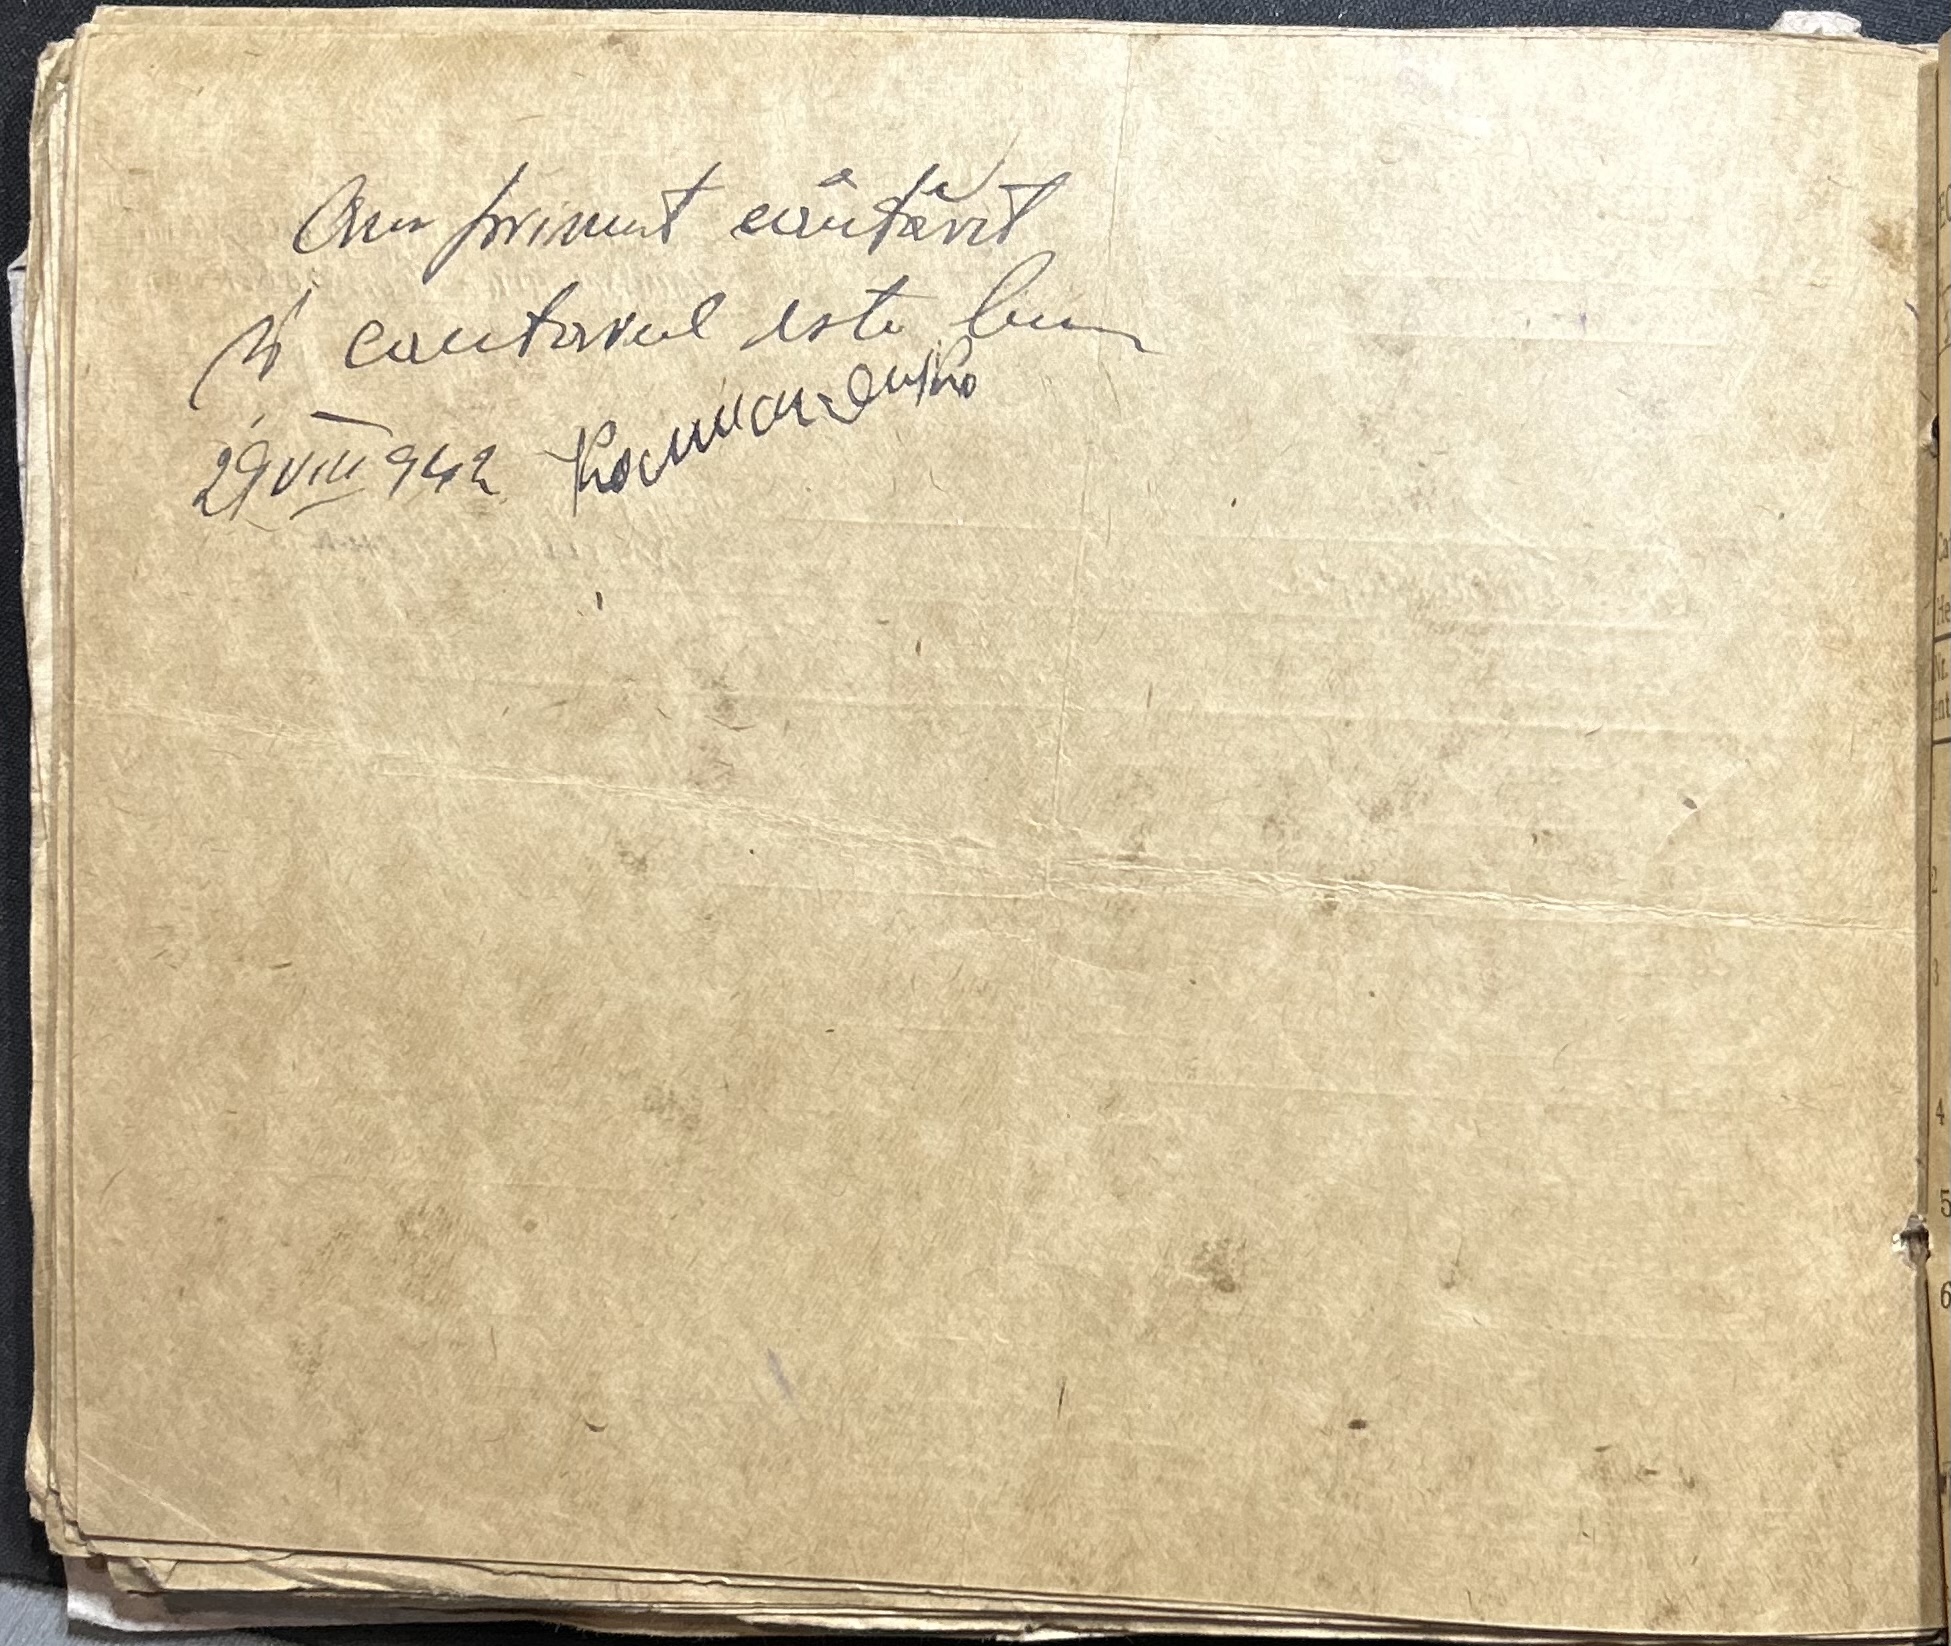 Am primit cântărit
și cantarul este bun
29 VIII 942
EC
Ca
He
Nr.
ent
2
3
4
5
6